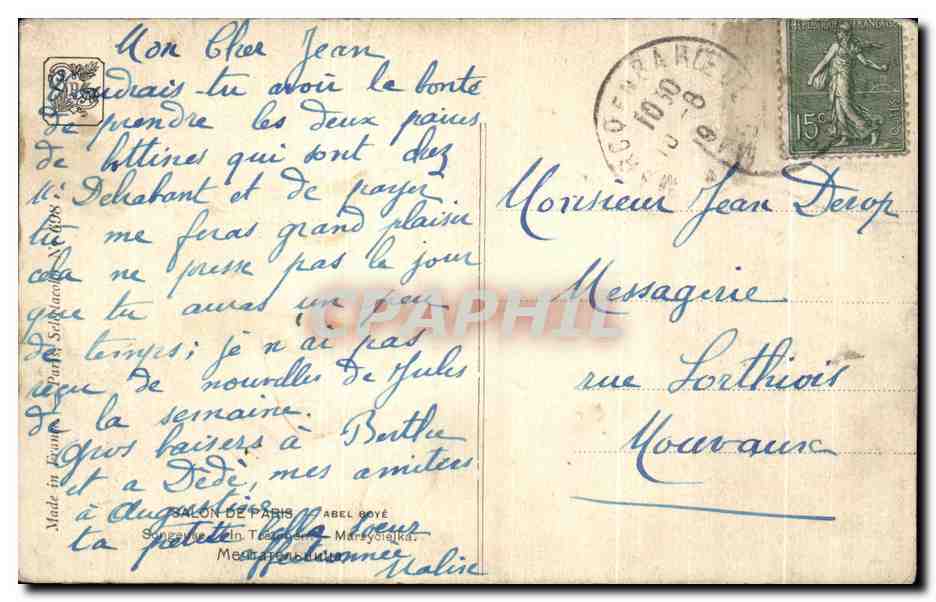 Mon Cher Jean
Voudrais-tu avoir la bonté
de prendre les deux paires
de bottines qui sont chez
Delrabant et de payer
tu me feras grand plaisir
cela ne presse pas le jour
que tu auras un peu
de temps; je n'ai pas
reçu de nouvelles de Jules
de la semaine.
gros baisers à Berthe
et a Dédè, mes amitiés
à Augustine
ta petite belle soeur
affectionnée
Malise
SALON DE PARIS ABEL BOYÉ
Songeuse In Marzycielka.
Мечтательница
Made in France Paris,
Monsieur Jean Derop
Messagerie
rue Lorthiois
Mouvaux
MARCQ EN BARŒUL
10 30
15c
CPAPHIL